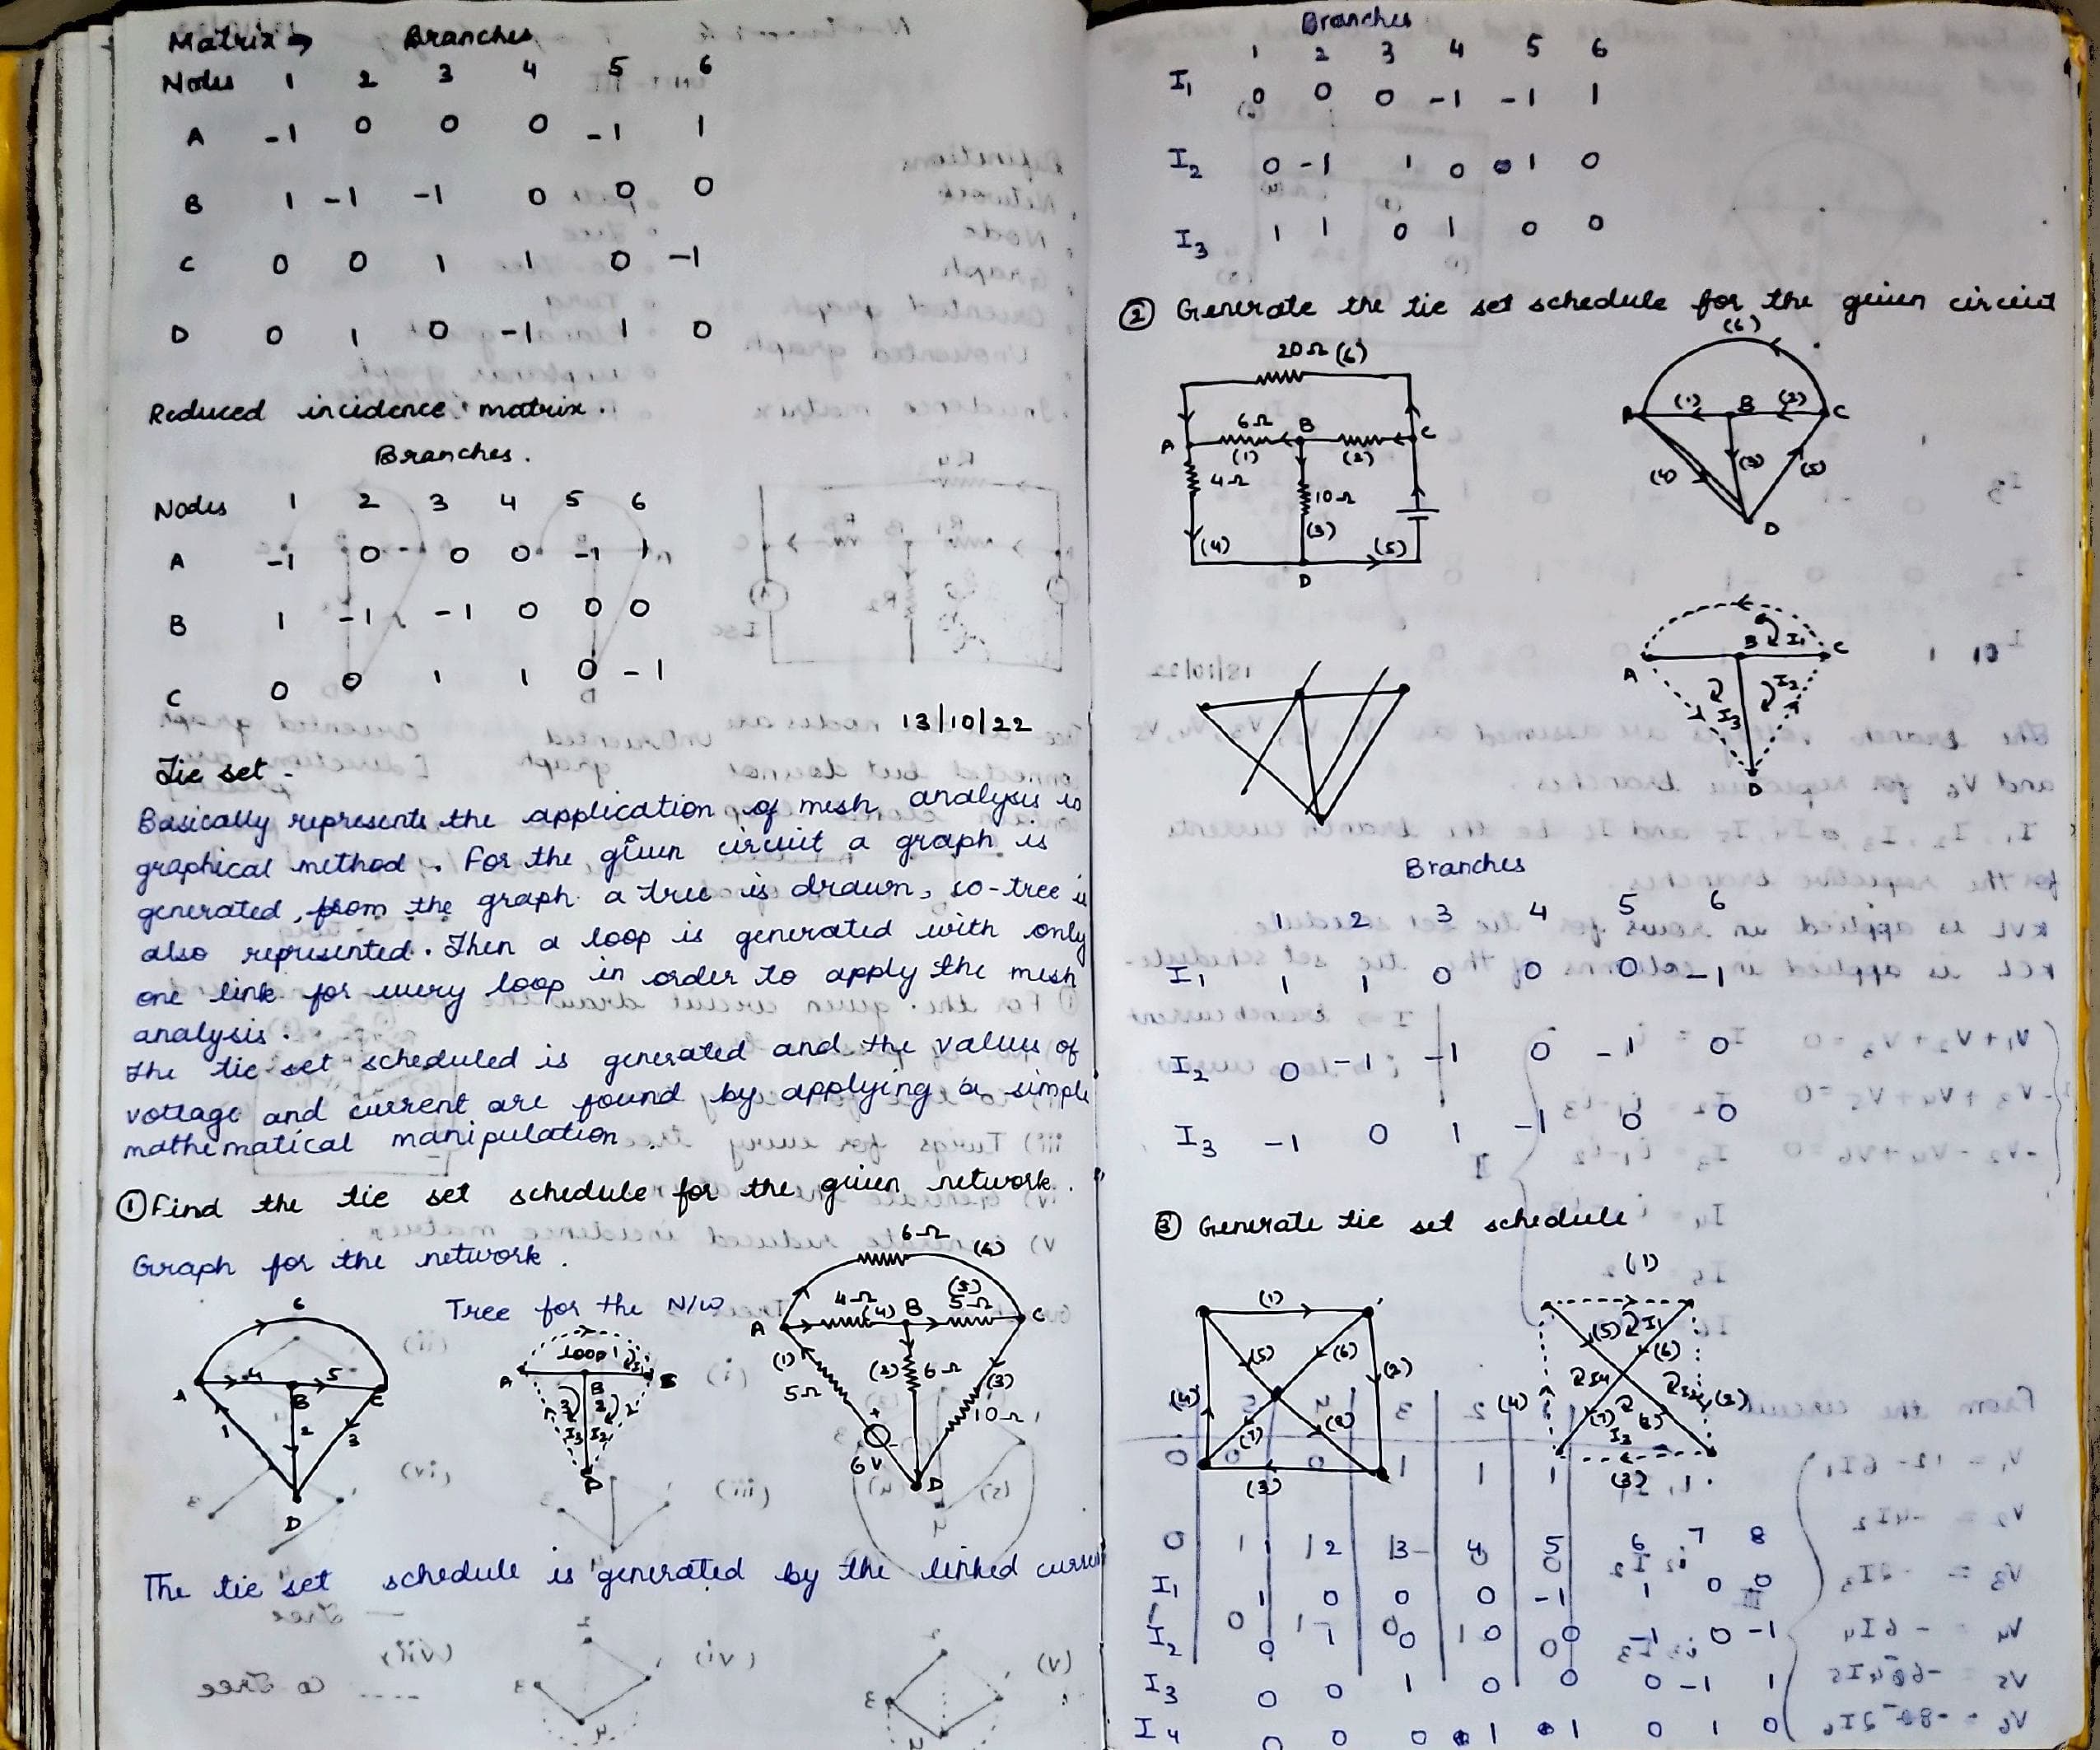 Matrix → Branches
Nodes 1 2 3 4 5 6
A -1 0 0 0 -1 1
B 1 -1 -1 0 0 0
C 0 0 1 1 0 -1
D 0 1 0 -1 1 0
Reduced incidence matrix.
Branches.
Nodes 1 2 3 4 5 6
A -1 0 0 0 -1 1
B 1 -1 -1 0 0 0
C 0 0 1 1 0 -1
13/10/22
Tie set -
Basically represents the application of mesh analysis in
graphical method. For the given circuit a graph is
generated, from the graph a tree is drawn, co-tree is
also represented. Then a loop is generated with only
one link for every loop in order to apply the mesh
analysis.
The tie set scheduled is generated and the values of
voltage and current are found by applying a simple
mathematical manipulation.
① Find the tie set schedule for the given network.
Graph for the network.
Tree for the N/w
6
A 4 B 5 C
1 2 3
D
loop 1 I1
A B B
3 2 2
I3 I2
D
6Ω (6)
4Ω (4) B (5) 5Ω
A C
(1) 5Ω (2) 6Ω (3) 10Ω
+ -
6V D
The tie set schedule is generated by the linked current
Branches
1 2 3 4 5 6
I1 0 0 0 -1 -1 1
I2 0 -1 1 0 1 0
I3 1 1 0 1 0 0
② Generate the tie set schedule for the given circuit
20Ω (6)
A 6Ω (1) B (2) C
4Ω 10Ω
(4) (3) (5)
D
(6)
A (1) B (2) C
(4) (3) (5)
D
A B I1 C
I3 I2
D
Branches
1 2 3 4 5 6
I1 1 1 0 0 0 -1
I2 0 -1 -1 0 -1 0
I3 -1 0 1 -1 0 0
③ Generate tie set schedule
(1)
(5) (6) (2)
(4)
(7) (8)
(3)
(1)
(5) I1 (6)
(4) I4 I2 (2)
(7) I3 (8)
(3)
1 2 3 4 5 6 7 8
I1 1 0 0 0 -1 1 0 0
I2 0 1 0 0 0 -1 0 -1
I3 0 0 1 0 0 0 -1 1
I4 0 0 0 1 1 0 1 0